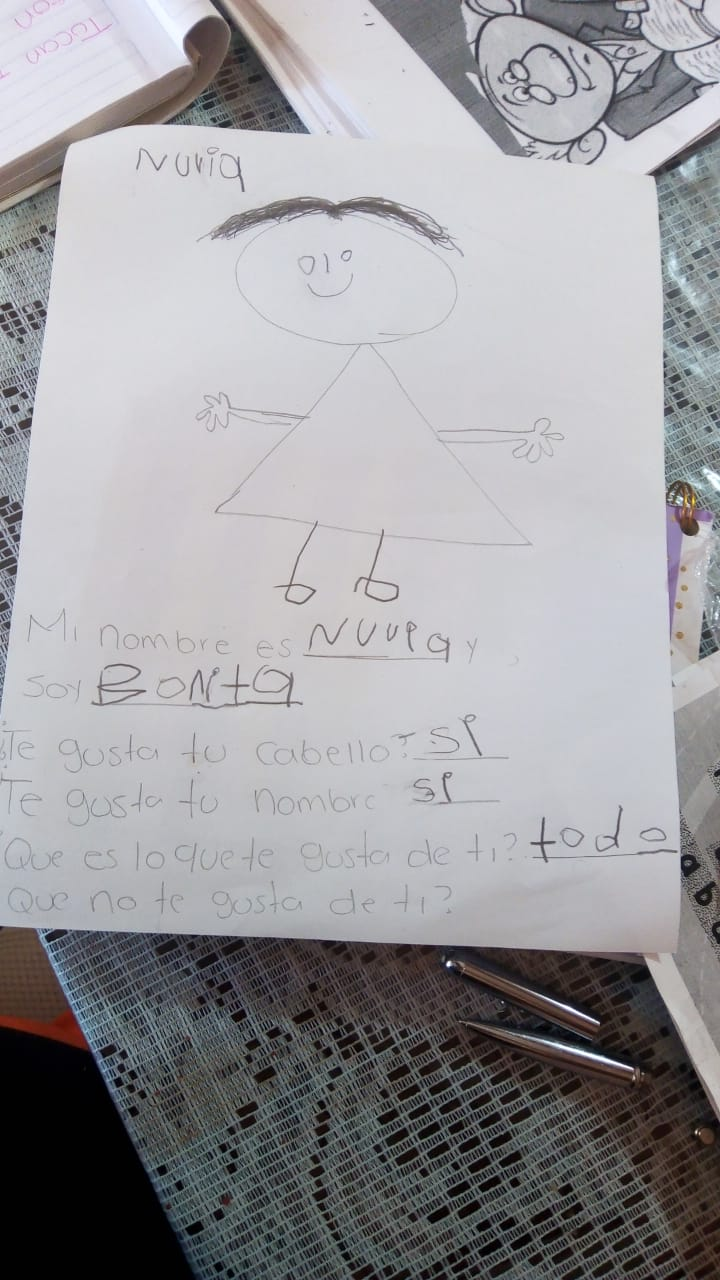 Tocan
Nuria
Mi nombre es NUUIA y
soy BONtA
¿Te gusta tu cabello? SI
Te gusta tu nombre SI
Que es lo que te gusta de ti? todo
Que no te gusta de ti?